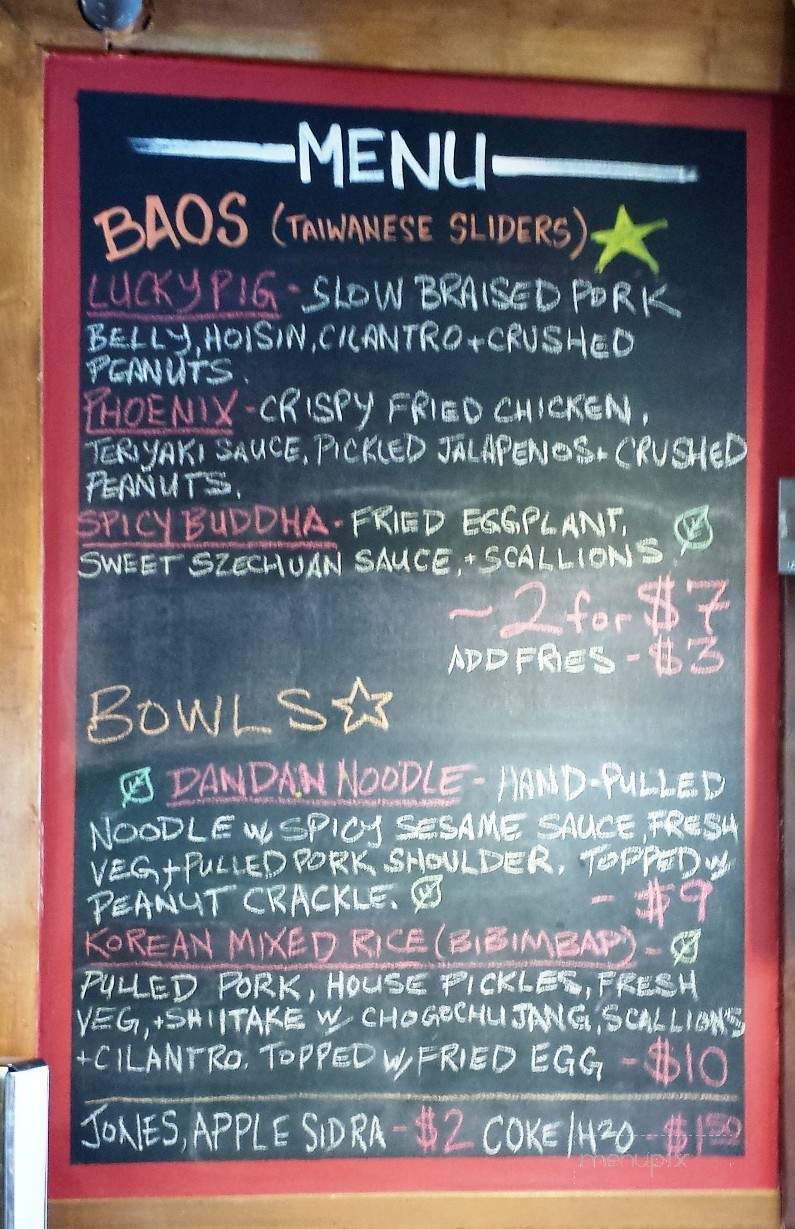 MENU
BAOS (TAIWANESE SLIDERS)
LUCKY PIG - SLOW BRAISED PORK
BELLY, HOISIN, CILANTRO + CRUSHED
PEANUTS.
PHOENIX - CRISPY FRIED CHICKEN,
TERIYAKI SAUCE, PICKLED JALAPENOS + CRUSHED
PEANUTS.
SPICY BUDDHA - FRIED EGGPLANT,
SWEET SZECHUAN SAUCE, + SCALLIONS.
~ 2 for $7
ADD FRIES - $3
BOWLS
DANDAN NOODLE - HAND-PULLED
NOODLE w/ SPICY SESAME SAUCE, FRESH
VEG + PULLED PORK SHOULDER. TOPPED w/
PEANUT CRACKLE. - $9
KOREAN MIXED RICE (BIBIMBAP) -
PULLED PORK, HOUSE PICKLES, FRESH
VEG, + SHIITAKE w/ CHOGOCHUJANG, SCALLIONS
+ CILANTRO. TOPPED w/ FRIED EGG - $10
JONES, APPLE SIDRA - $2 COKE/H2O - $1.50
menupix